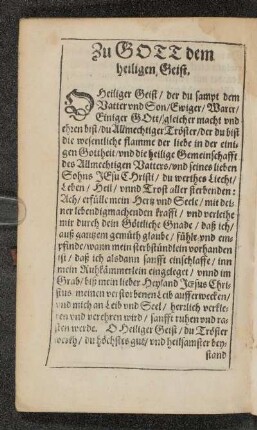 Zu GOTT dem
heiligen, Geist.
O Heiliger Geist / der du sampt dem
Vatter vnd Son / Ewiger / Warer /
Einiger GOtt / gleicher macht vnd
ehren bist / du Allmechtiger Tröster / der du bist
die wesentliche flamme der liebe in der eini-
gen Gottheit / vnd die heilige Gemeinschafft
des Allmechtigen Vatters / vnd seines lieben
Sohns JEsu Christi / du werthes Liecht /
Leben / Heil / vnnd Trost aller sterbenden:
Ach / erfülle mein Hertz vnd Seele / mit dei-
ner lebendigmachenden krafft / vnd verleihe
mir durch dein Göttliche Gnade / daß ich /
auß gantzem gemüth glaube / fühle vnd em-
pfinde / wann mein sterbstündlein vorhanden
ist / daß ich alsdann sanfft einschlaffe / inn
mein Ruhkämmerlein eingelegt / vnnd im
Grab / biß mein lieber Heyland Jesus Chri-
stus meinen verstorbenen Leib aufferwecken /
vnd mich an Leib vnd Seel / herlich verkle-
ren vnd verehren wird / sanfft ruhen vnd ra-
sten werde. O Heiliger Geist / du Tröster
werth / du höchstes gut / vnd heilsamster bey-
stand